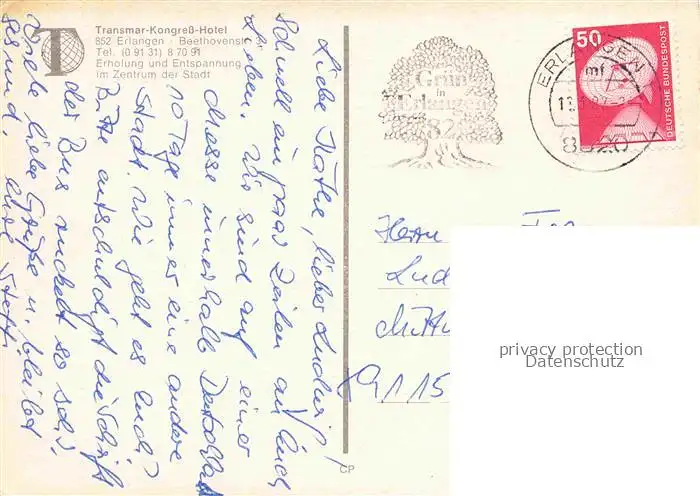 Transmar-Kongreß-Hotel
852 Erlangen · Beethovenstr.
Tel. (0 91 31) 8 70 91
Erholung und Entspannung
im Zentrum der Stadt
Liebe Käthe, lieber Ludwig!
Schnell ein paar Zeilen an Euch
Lieben. Wir sind auf einer
Messe innerhalb Deutschland
10 Tage immer eine andere
Stadt. Wie geht es Euch?
Bitte entschuldigt die Schrift
der Bus ruckelt so sehr.
Viele liebe Grüße u. bleibt
gesund. Eure
Grün
in
Erlangen
82
ERLANGEN
mf
8520
50
DEUTSCHE BUNDESPOST
Herrn
Lud
8115
CP
privacy protection
Datenschutz